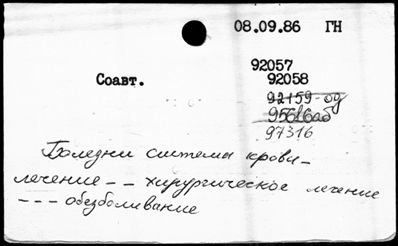 08.09.86 ГН
92057
Соавт. 92058
92159-од
95616аб
97316
Болезни системы крови -
лечение -- хирургическое лечение
--- обезболивание